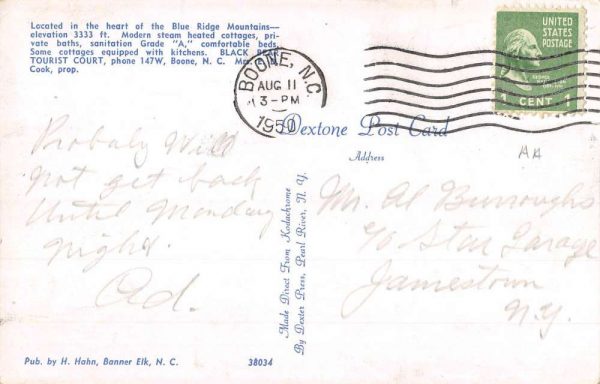 Located in the heart of the Blue Ridge Mountains—
elevation 3333 ft. Modern steam heated cottages, pri-
vate baths, sanitation Grade "A," comfortable beds.
Some cottages equipped with kitchens. BLACK BEAR
TOURIST COURT, phone 147W, Boone, N. C. Mrs.
Cook, prop.
BOONE, N.C.
AUG 11
3-PM
1950
UNITED
STATES
POSTAGE
1 CENT 1
Dextone Post Card
Address
Probaly Will
not get back
Until Monday
night.
Ad.
Made Direct From Kodachrome
By Dexter Press, Pearl River, N. Y.
Mr. Al Burroughs
c/o Star Garage
Jamestown
N.Y.
Pub. by H. Hahn, Banner Elk, N. C.
38034